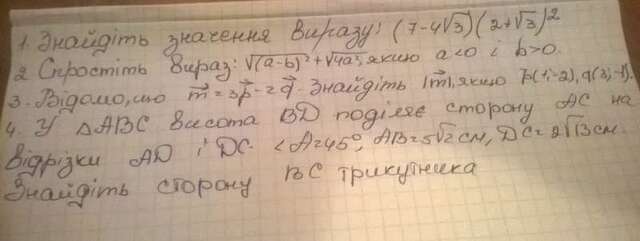 1. Знайдіть значення виразу: (7-4√3)(2+√3)²
2 Спростіть вираз: √(a-b)² + √4a², якщо a<0 і b>0.
3. Відомо, що m⃗ = 3p⃗ - 2q⃗. Знайдіть |m⃗|, якщо p⃗(1;-2), q⃗(3;-1).
4. У △ABC висота BD поділяє сторону AC на
відрізки AD і DC. <A=45°, AB=5√2см, DC=2√13см.
Знайдіть сторону BC трикутника